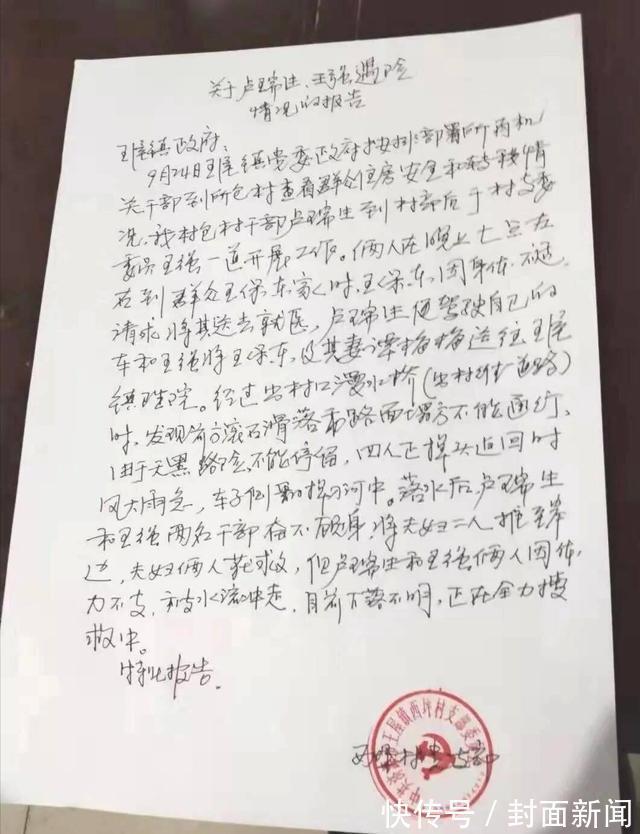 关于卢瑞生、王强遇险
情况的报告
王屋镇政府：
9月24日王屋镇党委政府按排部署所两机
关干部到所包村查看群众住房安全和转移情
况，我村包村干部卢瑞生到村部后于村支委
委员王强一道开展工作。俩人在晚上七点左
右到群众王保东家时，王保东因身体不适
请求将其送去就医，卢瑞生便驾驶自己的
车和王强将王保东及其妻谭梅梅送往王屋
镇医院。经过出村口漫水桥（出村唯一道路）
时，发现前方滚石滑落和路面塌方不能通行、
由于天黑路险不能停留，四人正掉头返回时
风大雨急，车子侧翻掉河中。落水后卢瑞生
和王强两名干部奋不顾身，将夫妇二人推至岸
边，夫妇俩人获救，但卢瑞生和王强俩人因体
力不支，被水流冲走，目前下落不明，正在全力搜
救中。
特此报告。
西坪村党支部
中共济源 王屋镇西坪村支部委员
快传号／封面新闻